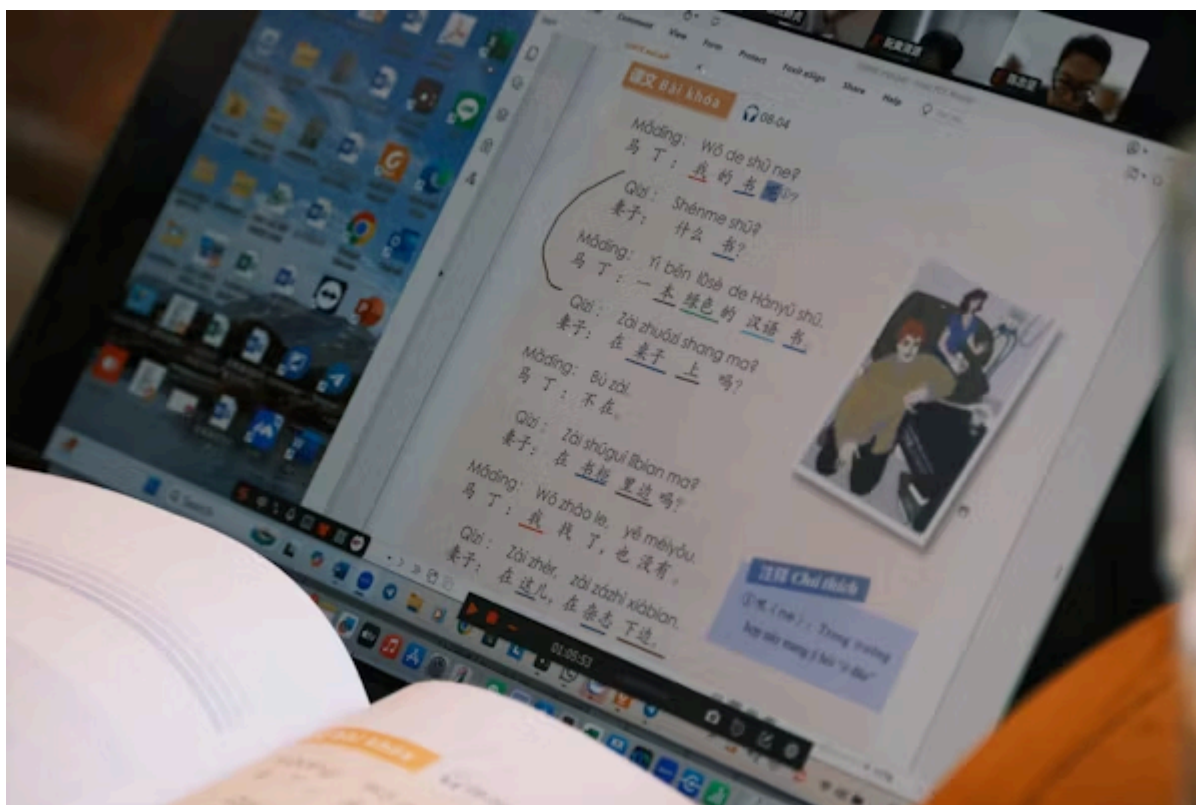 Comment View Form Protect Foxit eSign Share Help
课文 Bài khóa
08-04
Mǎdīng: Wǒ de shū ne?
马丁：我的书呢
Qīzi: Shénme shū?
妻子：什么书？
Mǎdīng: Yì běn lǜsè de Hànyǔ shū.
马丁：一本绿色的汉语书。
Qīzi: Zài zhuōzi shang ma?
妻子：在桌子上吗？
Mǎdīng: Bú zài.
马丁：不在。
Qīzi: Zài shūguì lǐbian ma?
妻子：在书柜里边吗？
Mǎdīng: Wǒ zhǎo le, yě méiyǒu.
马丁：我找了，也没有。
Qīzi: Zài zhèr, zài zázhì xiàbian.
妻子：在这儿，在杂志下边。
注释 Chú thích
①呢 (ne): Trong trường
Search
01:05:53
Bài khóa